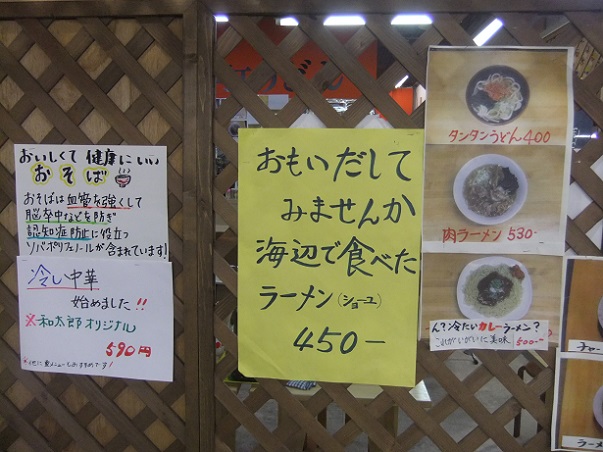 おいしくて 健康にいい
おそば
おそばは血管を強くして
脳卒中などを防ぎ
認知症防止に役立つ
ソバポリフェノールが含まれています!
冷し中華
始めました!!
※和太郎オリジナル
590円
おもいだして
みませんか
海辺で食べた
ラーメン(ショーユ)
450-
タンタンうどん400
肉ラーメン 530-
ん?冷たいカレーラーメン?
これがいがいに美味 500-